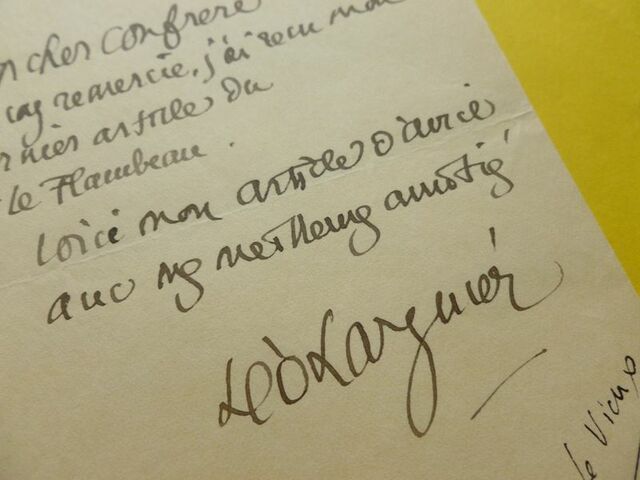 n cher Confrère
vous remercie. j'ai reçu mon
rnier article du
Le Flambeau.
Voici mon article d'avril
avec mes meilleures amitiés
Léo Larguier
le Vieux